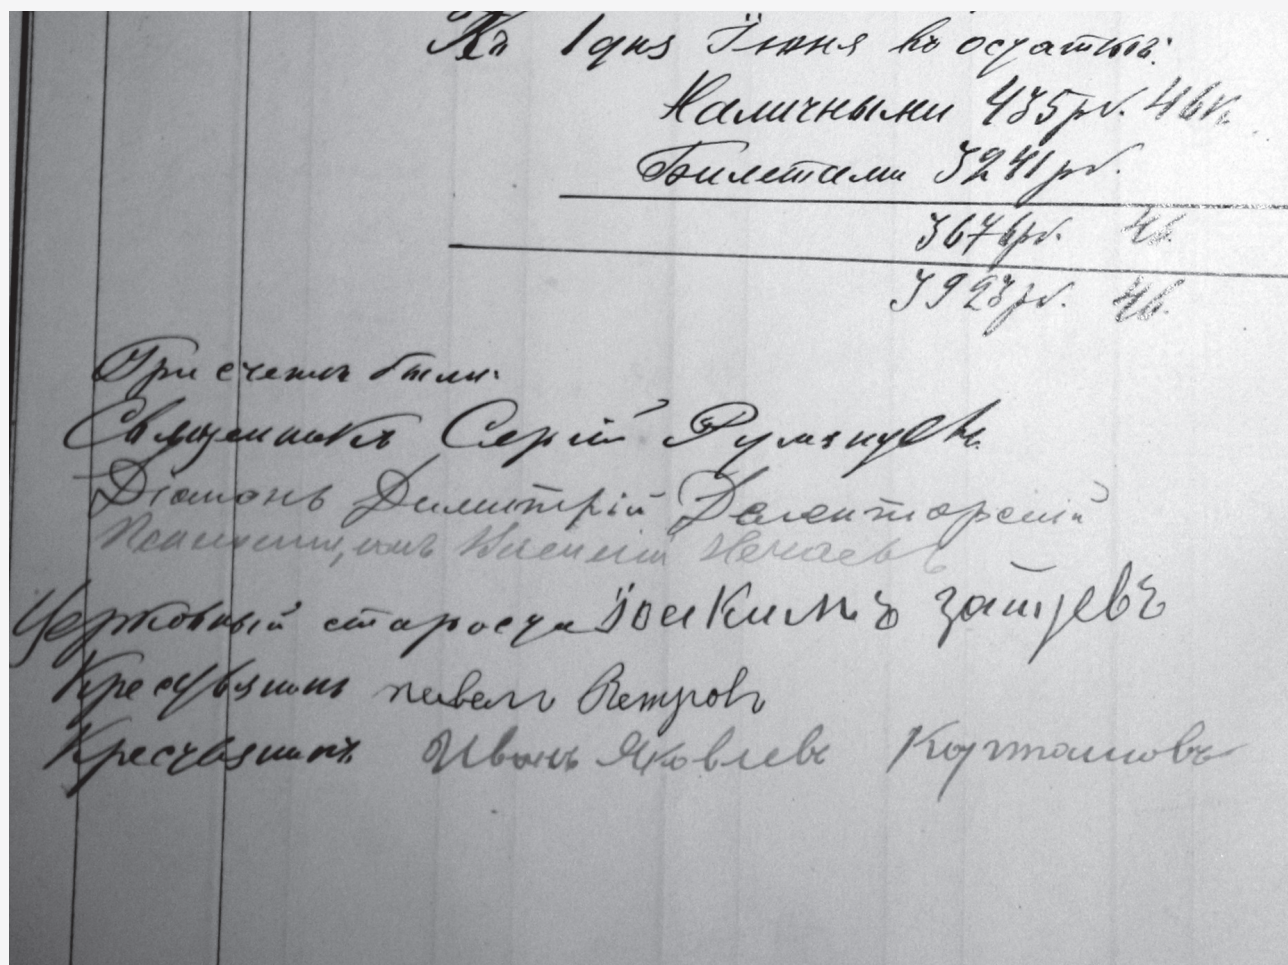 Къ 1 дня Іюня въ остаткѣ:
Наличными 435 рб. 46 к.
Билетами 3241 рб.
3676 рб. 46.
3923 рб. 46.
При счетѣ были:
Священникъ Сергій Румянцевъ.
Діаконъ Димитрій
Псаломщикъ Алексѣй Нечаевъ
Церковный староста Іоакимъ Зайцевъ
Крестьянинъ павелъ Петровъ
Крестьянинъ Иванъ Яковлевъ